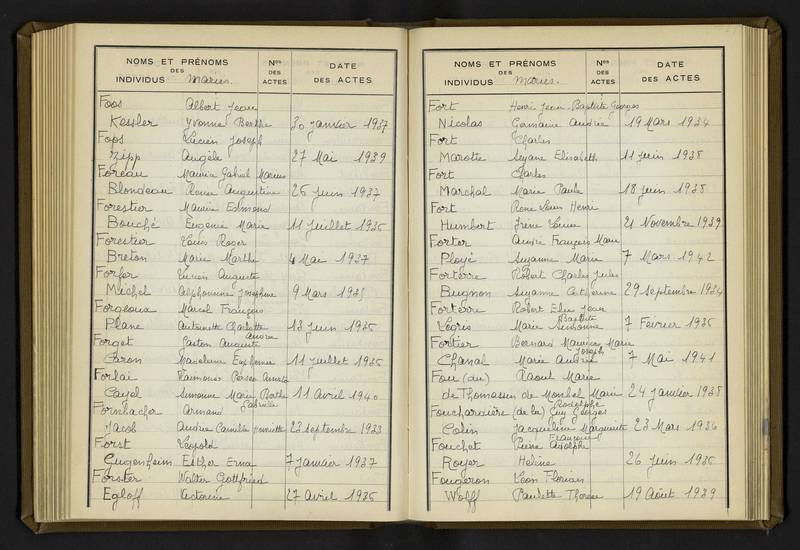 NOMS ET PRÉNOMS
DES
INDIVIDUS Mariés.
Nos
DES
ACTES
DATE
DES ACTES
Foos Albert Jean
Kessler Yvonne Berthe 30 Janvier 1937
Foos Lucien Joseph
Zipp Angèle 27 Mai 1939
Foreau Maurice Gabriel Marius
Blondeau Augustine 26 Juin 1937
Forestier Maurice Edmond
Bouché Eugénie Marie 11 Juillet 1936
Forestier Louis Roger
Breton Marie Marthe 4 Mai 1937
Forfer Lucien Auguste
Michel Alphonsine Joséphine 9 Mars
Forgeoux Marcel François
Plane Antoinette Charlotte 13 Juin 1936
Forget Gaston Auguste
Caron Madeleine 11 Juillet 1936
Forlai
Cayol Simonne Marie Berthe 11 Avril 1940
Gabrielle
Fornbacher Armand
Jacob Andrée Camille Henriette 23 septembre 1933
Forst Léopold
Gugenheim Esther Erna 7 Janvier 1937
Forster Walter Gottfried
Egloff Victorine 27 Avril 1936
NOMS ET PRÉNOMS
DES
INDIVIDUS Mariés.
Nos
DES
ACTES
DATE
DES ACTES
Fort Henri Jean Baptiste Georges
Nicolas Germaine Andrée 19 Mars 1934
Fort Charles
Marotte Suzanne Elisabeth 11 Juin 1938
Fort Charles
Marchal Marie Paule 18 Juin 1938
Fort René Louis Henri
Humbert Irène Louise 21 Novembre 1939
Forter André François Marie
Ployé Suzanne Marie 7 Mars 1942
Forterre Robert Charles Jules
Bugnon Suzanne Catherine 29 Septembre 1934
Forterre Robert Elie Jean
Baptiste
Legris Marie Simonne 7 Février 1936
Fortier Bernard Maurice Marie
Joseph
Chanal Marie Andrée 7 Mai 1941
Fou (du) Raoul Marie
de Thomassin de Montbel Marie 24 Janvier 1938
Rodolphe
Fouchardière (de la) Guy Georges
Colin Jacqueline Marguerite 23 Mars 1936
Françoise
Fouchet Pierre Adolphe
Royer Hélène 26 Juin 1936
Fougeron Léon Florian
Wolff Paulette Thérèse 19 Août 1939